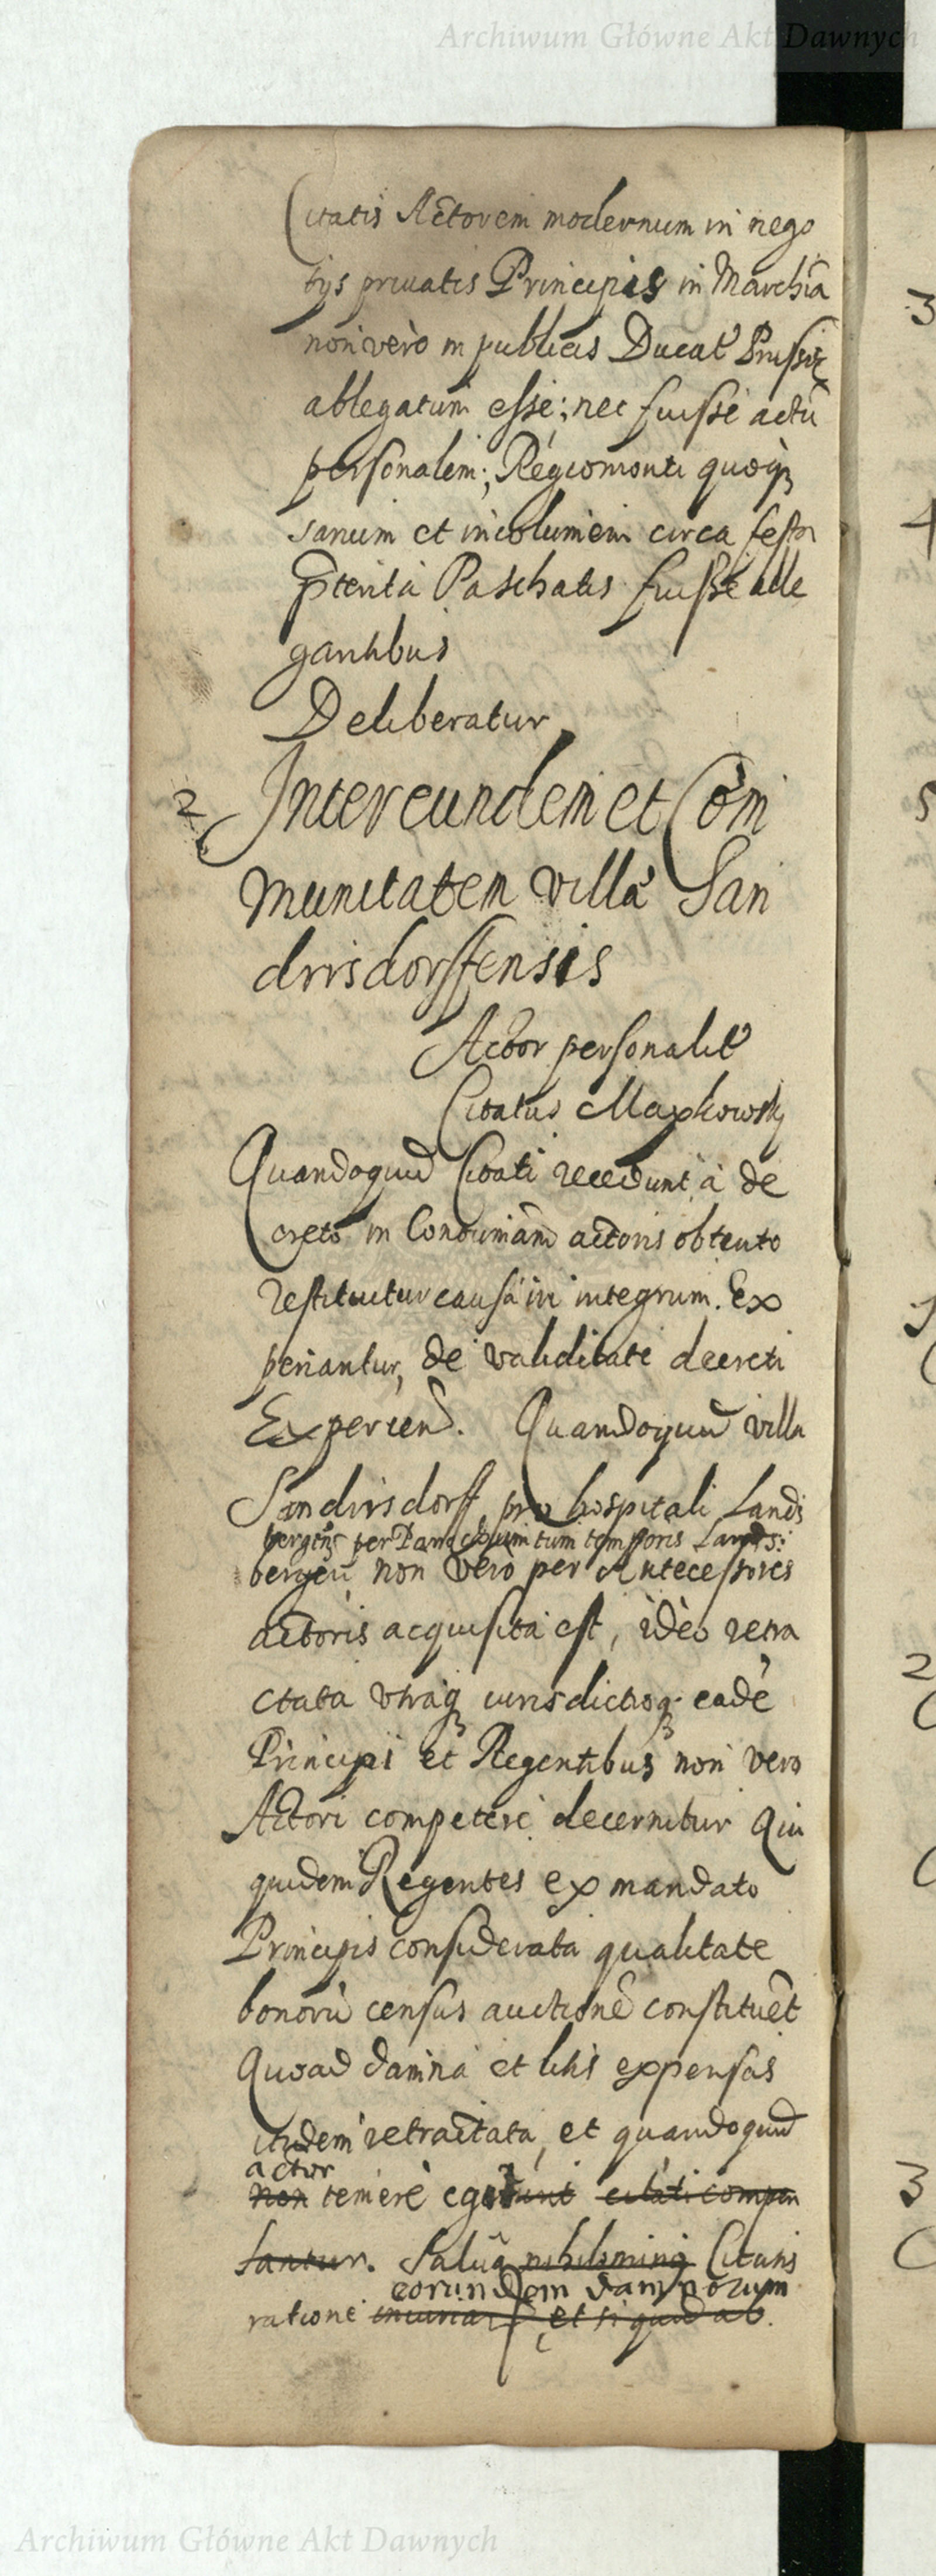 Archiwum Główne Akt Dawnych
Citatis Actorem modernum in nego
tijs priuatis Principis in Marchiā
non verò in publicis Ducat Prussiæ
ablegatum esse; nec fuisse actū
personalem; Regiomonti quoqꝫ
sanum et incolumem circa festa
p̄terita Paschatis fuisse alle
gantibus
Deliberatur
2 Inter eundem et Com
munitatem villæ San
dirsdorffensis
Actor personalit
Citatus Maxkowsky
Quandoquid Citati recedunt à de
creto in Contumā actoris obtento
restituitur causa in integrum. Ex
periantur, de validitate decreti
Experiend. Quandoquid villa
Sandirsdorff pro hospitali Lands
bergens per Parochum tum temporis Lands:
bergeñ non verò per Antecessores
actoris acquisita est, ideo retra
ctata vtraqꝫ iurisdictioqꝫ eadē
Principi et Regentibus non vero
Actori competere decernitur Qui
quidem Regentes ex mandato
Principis considerata qualitate
bonorū census auctionē constituēt
Quoad damna et litis expensas
itidem retractata, et quandoquid
actor
non temerè egerunt citati compen
santur. Saluā nihilominꝰ Citatis
eorundem damnorum
ratione et si quid ab.
3
4
5
2
3
Archiwum Główne Akt Dawnych